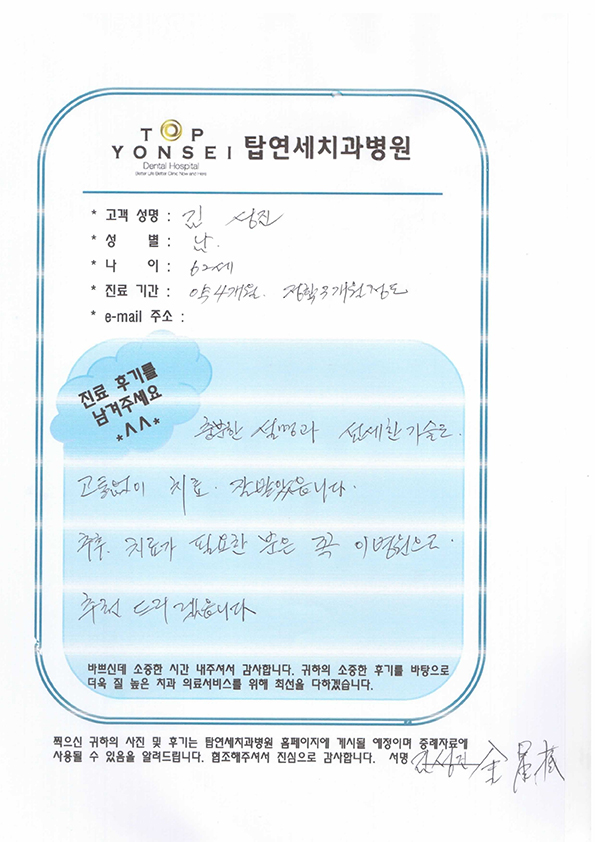 TOP
YONSEI 탑연세치과병원
Dental Hospital
Better Life Better Clinic Now and Here
* 고객 성명 : 김 성진
* 성 별 : 남.
* 나 이 : 62세
* 진료 기간 : 약 4개월. 정확 3개월 정도
* e-mail 주소 :
진료 후기를
남겨주세요
*^^*
충분한 설명과 섬세한 기술로.
고통없이 치료. 잘받았읍니다.
추후. 치료가 필요한 분은 꼭 이병원으로.
추천 드리겠읍니다
바쁘신데 소중한 시간 내주셔서 감사합니다. 귀하의 소중한 후기를 바탕으로
더욱 질 높은 치과 의료서비스를 위해 최선을 다하겠습니다.
찍으신 귀하의 사진 및 후기는 탑연세치과병원 홈페이지에 게시될 예정이며 증례자료에
사용될 수 있음을 알려드립니다. 협조해주셔서 진심으로 감사합니다. 서명 김성진 金